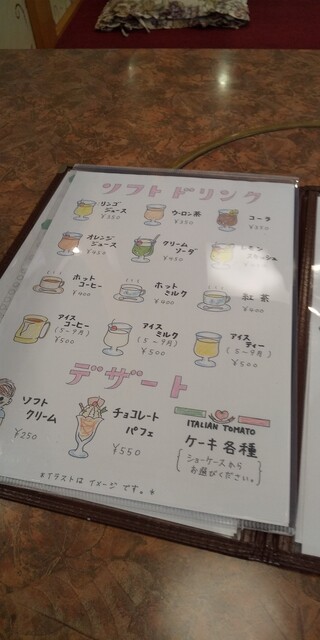 ソフトドリンク
リンゴ
ジュース
¥350
ウーロン茶
¥350
コーラ
¥350
オレンジ
ジュース
¥450
クリーム
ソーダ
¥450
ホット
コーヒー
¥400
ホット
ミルク
¥400
紅茶
¥400
アイス
コーヒー
(5〜9月)
¥500
アイス
ミルク
(5〜9月)
¥500
アイス
ティー
(5〜9月)
¥500
デザート
ソフト
クリーム
¥250
チョコレート
パフェ
¥550
ITALIAN TOMATO
ケーキ各種
ショーケースから
お選びください。
*イラストは イメージ です。*